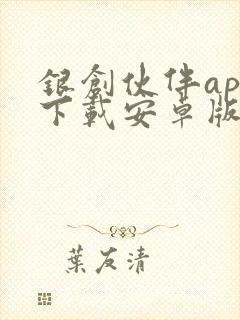 銀創伙伴ap
下載安卓版
葉友清